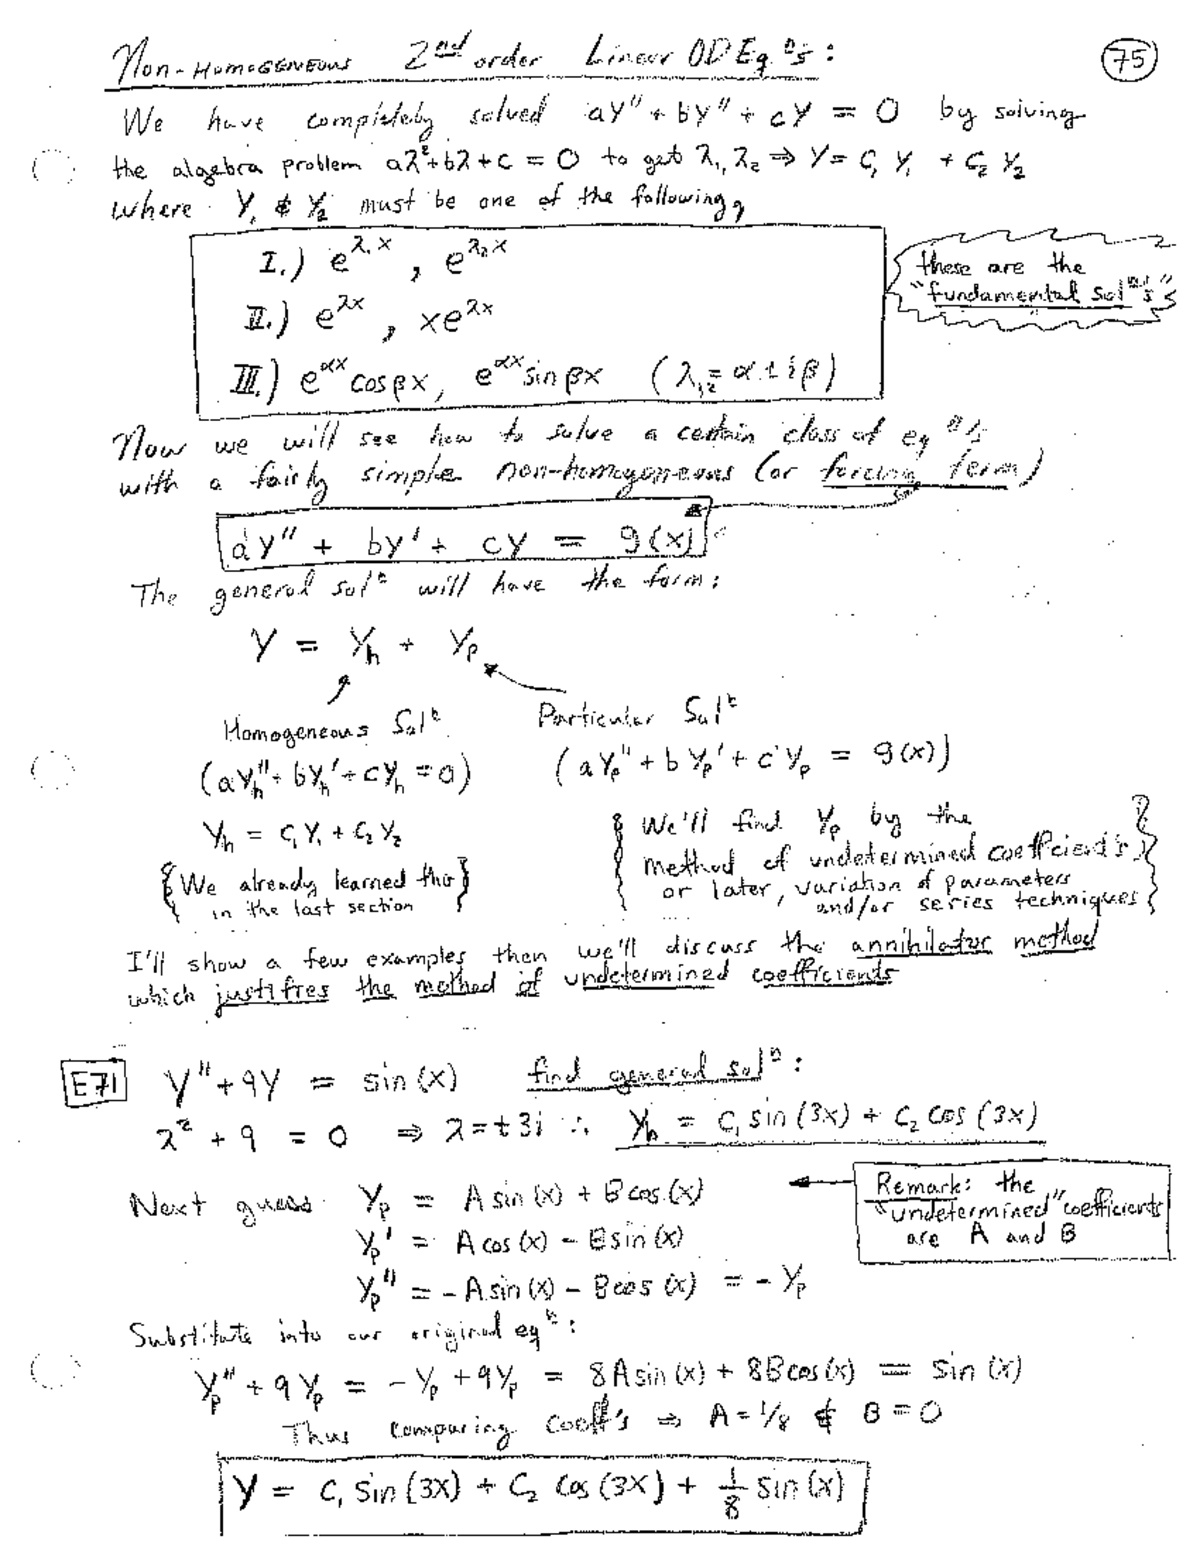 Non-Homogeneous 2nd order Linear ODEqⁿs:
75
We have completely solved ay'' + by'' + cy = 0 by solving
the algebra problem aλ²+bλ+c = 0 to get λ₁, λ₂ ⇒ y = c₁y₁ + c₂y₂
where y₁ & y₂ must be one of the following,
I.) e^{λ₁x} , e^{λ₂x}
II.) e^{λx} , xe^{λx}
III.) e^{αx}cosβx, e^{αx}sinβx (λ₁,₂ = α ± iβ)
these are the
"fundamental solⁿ's"
Now we will see how to solve a certain class of eqⁿ's
with a fairly simple non-homogeneous (or forcing term)
ay'' + by' + cy = g(x)
The general solⁿ will have the form:
y = y_h + y_p
Homogeneous Solⁿ
(ay_h'' + by_h' + cy_h = 0)
y_h = c₁y₁ + c₂y₂
{We already learned this
in the last section}
Particular Solⁿ
(ay_p'' + by_p' + cy_p = g(x))
{We'll find y_p by the
method of undetermined coefficients,
or later, variation of parameters
and/or series techniques}
I'll show a few examples then we'll discuss the annihilator method
which justifies the method of undetermined coefficients
E71 y'' + 9y = sin(x) find general solⁿ:
λ² + 9 = 0 ⇒ λ = ±3i ∴ y_h = c₁sin(3x) + c₂cos(3x)
Next guess y_p = Asin(x) + Bcos(x)
y_p' = Acos(x) - Bsin(x)
y_p'' = -Asin(x) - Bcos(x) = -y_p
Remark: the
"undetermined" coefficients
are A and B
Substitute into our original eqⁿ:
y_p'' + 9y_p = -y_p + 9y_p = 8Asin(x) + 8Bcos(x) = sin(x)
Thus comparing coeff's ⇒ A = 1/8 & B = 0
y = c₁sin(3x) + c₂cos(3x) + 1/8 sin(x)